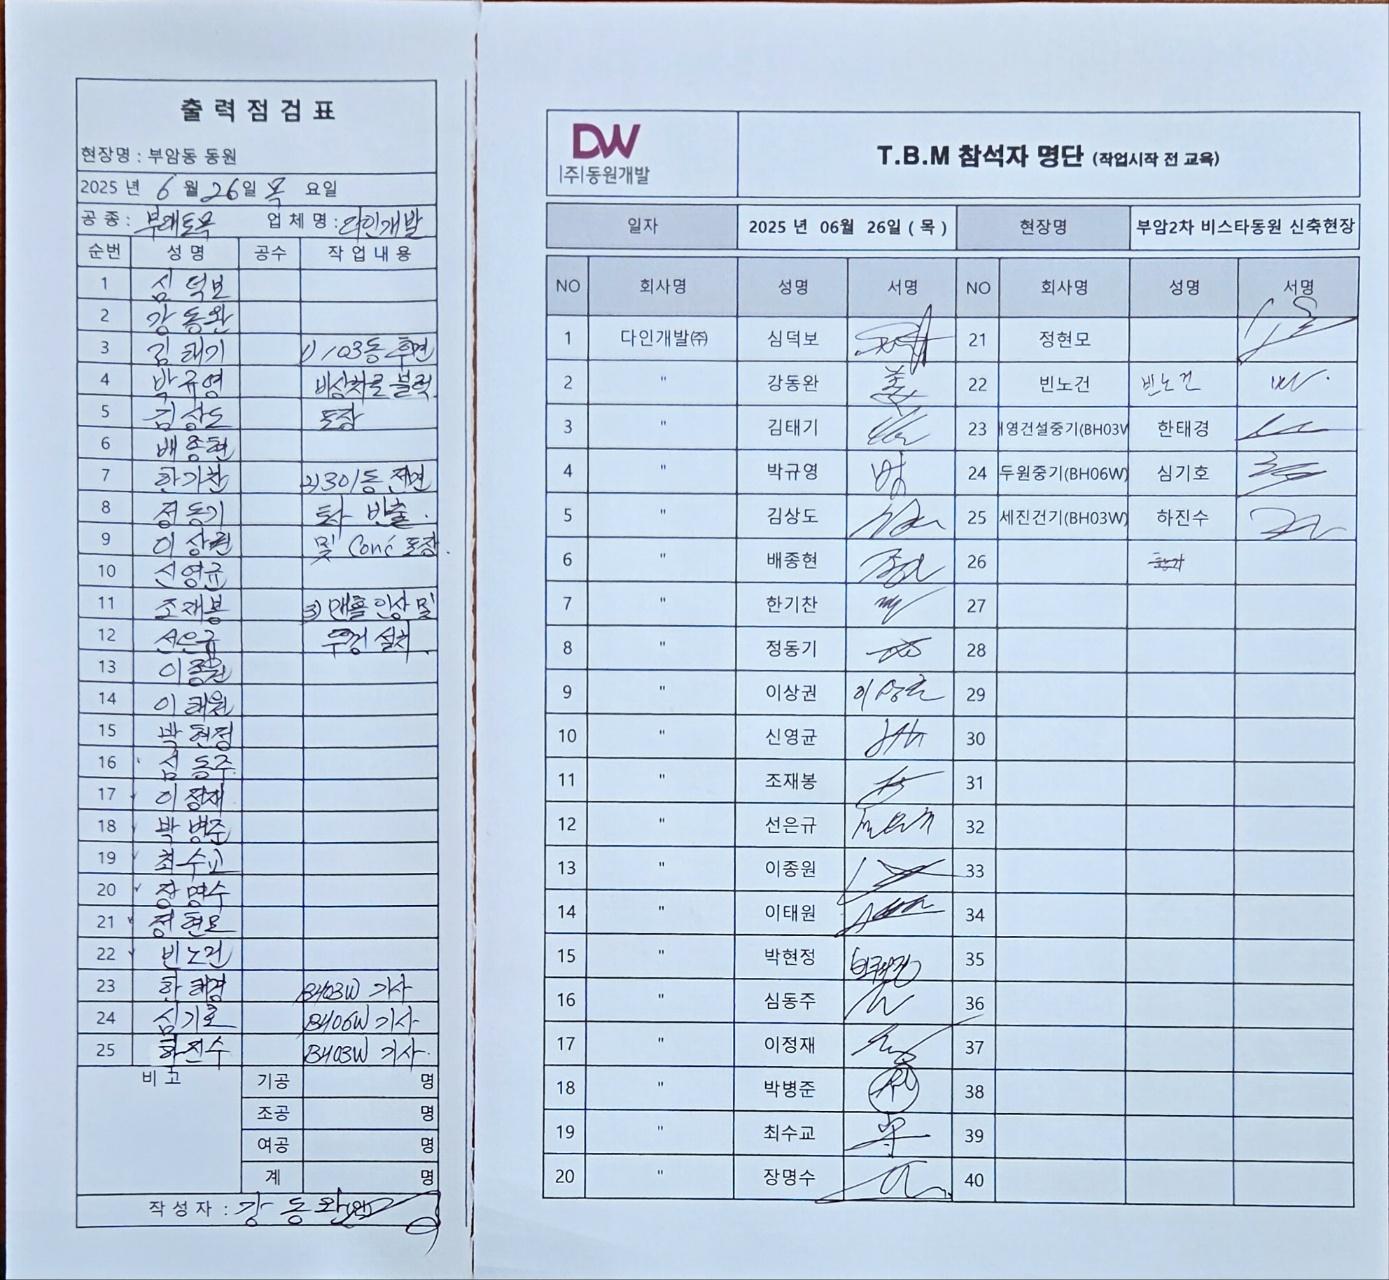 출력점검표
현장명 : 부암동 동원
2025 년 6 월 26일 목 요일
공 종 : 부대토목 업 체 명 : 다인개발
순번 성 명 공수 작 업 내 용
1 심덕보
2 강동완
3 김태기 1) 103동 후면
4 박규영 비상차로 블럭
5 김상도 포장
6 배종현
7 한기찬 2) 301동 전면
8 정동기 토사 반출.
9 이상권 및 Conc 포장.
10 신영균
11 조재봉 3) 맨홀 인상 및
12 선은규 뚜껑 설치.
13 이종원
14 이태원
15 박현정
16 심동주
17 이정재
18 박병준
19 최수교
20 장명수
21 정현모
22 빈노건
23 한태경 BH03W 기사
24 심기호 BH06W 기사
25 하진수 BH03W 기사.
비 고 기공 명
조공 명
여공 명
계 명
작 성 자 : 강동완
DW
(주)동원개발
T.B.M 참석자 명단 (작업시작 전 교육)
일자 2025 년 06월 26일 ( 목 ) 현장명 부암2차 비스타동원 신축현장
NO 회사명 성명 서명 NO 회사명 성명 서명
1 다인개발㈜ 심덕보 21 정현모
2 " 강동완 22 빈노건 빈노건
3 " 김태기 23 영건설중기(BH03W 한태경
4 " 박규영 24 두원중기(BH06W) 심기호
5 " 김상도 25 세진건기(BH03W) 하진수
6 " 배종현 26
7 " 한기찬 27
8 " 정동기 28
9 " 이상권 이상권 29
10 " 신영균 30
11 " 조재봉 31
12 " 선은규 32
13 " 이종원 33
14 " 이태원 34
15 " 박현정 박현정 35
16 " 심동주 36
17 " 이정재 37
18 " 박병준 38
19 " 최수교 39
20 " 장명수 40